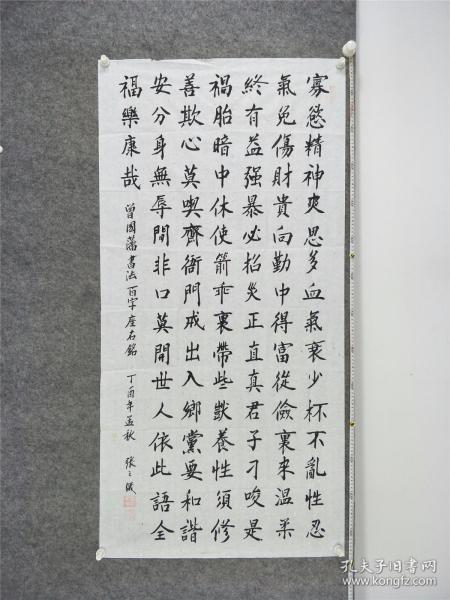 寡慾精神爽思多血氣衰少杯不亂性忍
氣免傷財貴向勤中得富從儉裏來温柔
終有益强暴必招災正直真君子刁唆是
禍胎暗中休使箭乖裏帶些獃養性須修
善欺心莫喫齊衙門戒出入鄉黨要和諧
安分身無辱閒非口莫開世人依此語全
福樂康哉 曾國藩書法百字座右銘 丁酉年孟秋 張之
孔夫子旧书网
www.kongfz.com